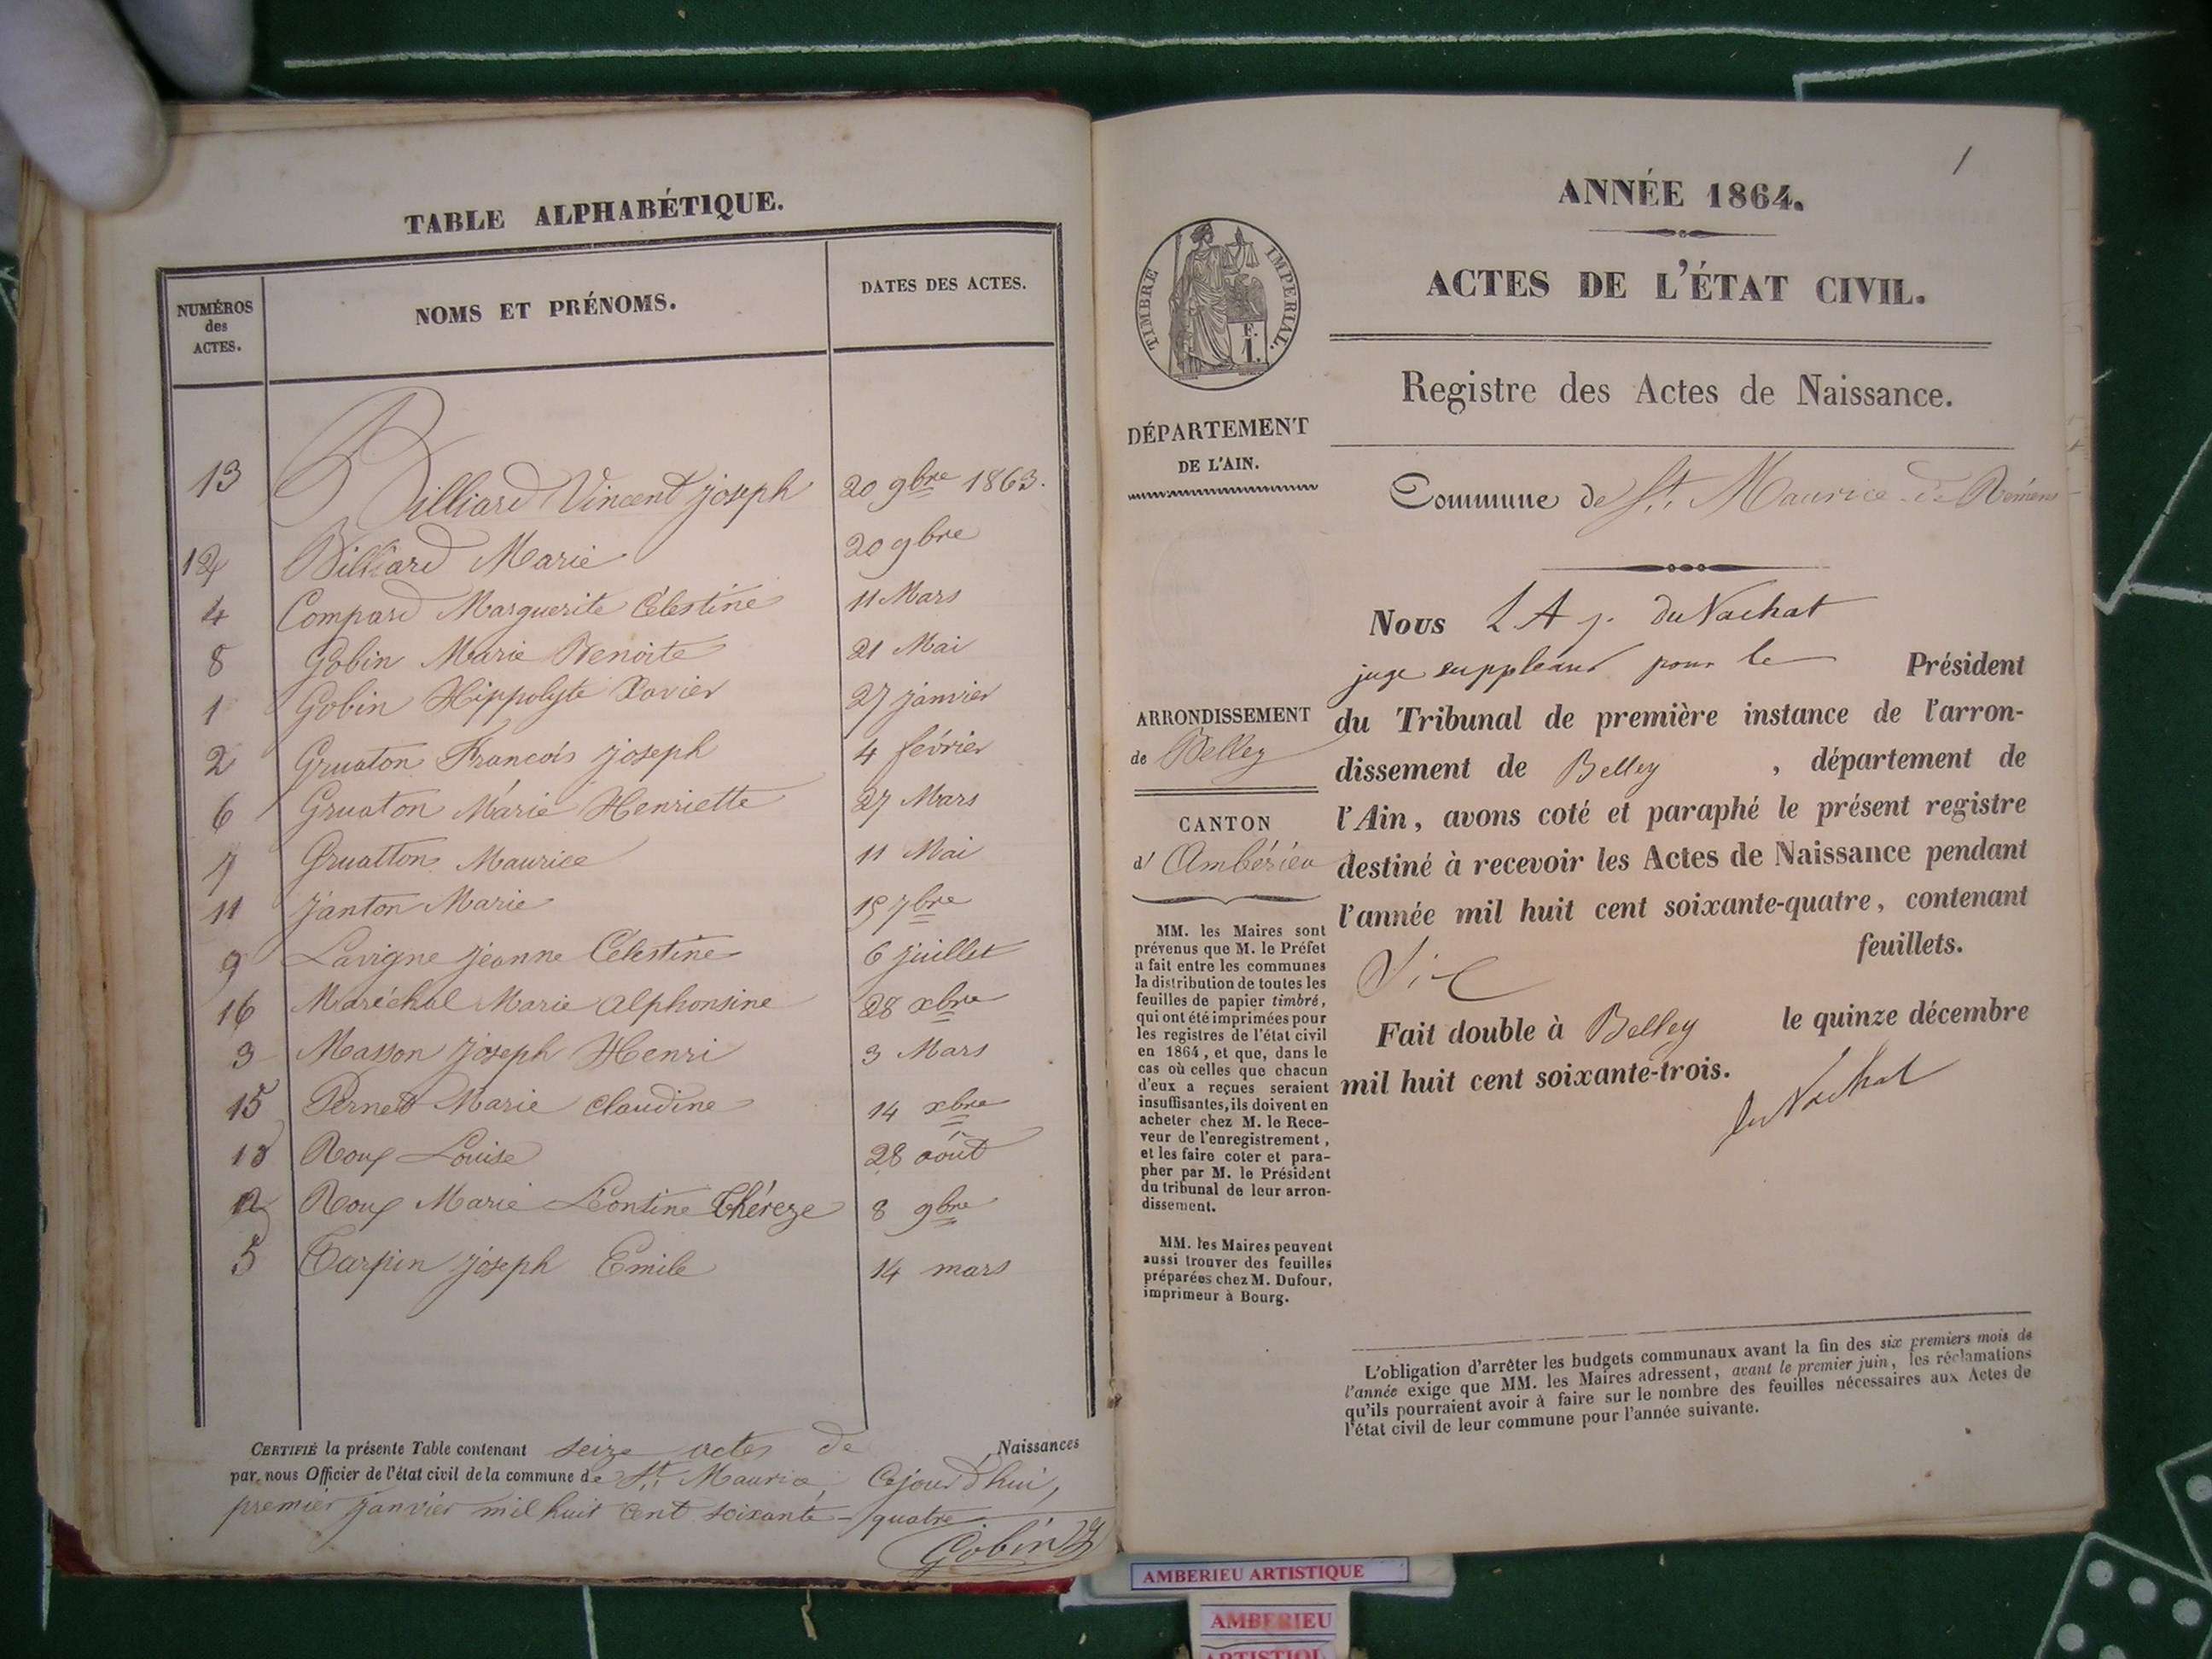 TABLE ALPHABÉTIQUE.
NUMÉROS
des
ACTES.
NOMS ET PRÉNOMS.
DATES DES ACTES.
13 Billiard Vincent joseph 20 9bre 1863.
14 Billiard Marie 20 9bre
4 Compard Marguerite Célestine 11 Mars
8 Gobin Marie Benoite 21 Mai
1 Gobin Hippolyte Xavier 27 janvier
2 Gruaton François joseph 4 février
6 Gruaton Marie Henriette 27 Mars
7 Gruatton Maurice 11 Mai
11 Janton Marie 15 7bre
9 Lavigne Jeanne Célestine 6 juillet
16 Maréchal Marie Alphonsine 28 xbre
3 Masson Joseph Henri 3 Mars
15 Pernet Marie Claudine 14 xbre
10 Roux Louise 28 août
12 Roux Marie Léontine Théreze 8 9bre
5 Tarpin joseph Emile 14 mars
CERTIFIÉ la présente Table contenant seize actes de Naissances
par nous Officier de l'état civil de la commune de St. Maurice, Cejourd'hui,
premier janvier mil huit cent soixante-quatre
Gobin
1
ANNÉE 1864.
ACTES DE L'ÉTAT CIVIL.
Registre des Actes de Naissance.
TIMBRE IMPERIAL.
F.
1.
DÉPARTEMENT
DE L'AIN.
Commune de St. Maurice de Rémens
Nous L A j. du Vachat
juge suppléant pour le Président
du Tribunal de première instance de l'arron-
dissement de Belley, département de
l'Ain, avons coté et paraphé le présent registre
destiné à recevoir les Actes de Naissance pendant
l'année mil huit cent soixante-quatre, contenant
Six feuillets.
Fait double à Belley le quinze décembre
mil huit cent soixante-trois.
du Vachat
ARRONDISSEMENT
de Belley
CANTON
d' Ambérieu
MM. les Maires sont
prévenus que M. le Préfet
a fait entre les communes
la distribution de toutes les
feuilles de papier timbré,
qui ont été imprimées pour
les registres de l'état civil
en 1864, et que, dans le
cas où celles que chacun
d'eux a reçues seraient
insuffisantes, ils doivent en
acheter chez M. le Rece-
veur de l'enregistrement,
et les faire coter et para-
pher par M. le Président
du tribunal de leur arron-
dissement.
MM. les Maires peuvent
aussi trouver des feuilles
préparées chez M. Dufour,
imprimeur à Bourg.
L'obligation d'arrêter les budgets communaux avant la fin des six premiers mois de
l'année exige que MM. les Maires adressent, avant le premier juin, les réclamations
qu'ils pourraient avoir à faire sur le nombre des feuilles nécessaires aux Actes de
l'état civil de leur commune pour l'année suivante.
AMBERIEU ARTISTIQUE
AMBERIEU
ARTISTIQUE